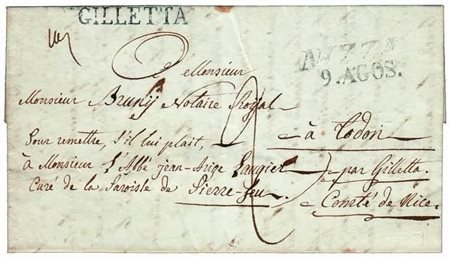 GILLETTA
NIZZA
9. AGOS.
Monsieur
Monsieur Bruny Notaire Royal
à Todon
Pour remettre, s'il lui plait,
à Monsieur l'Abbé jean-Ange Laugier
par Gilletta
Curé de la Paroisse de Pierre-feu
Comté de Nice
2